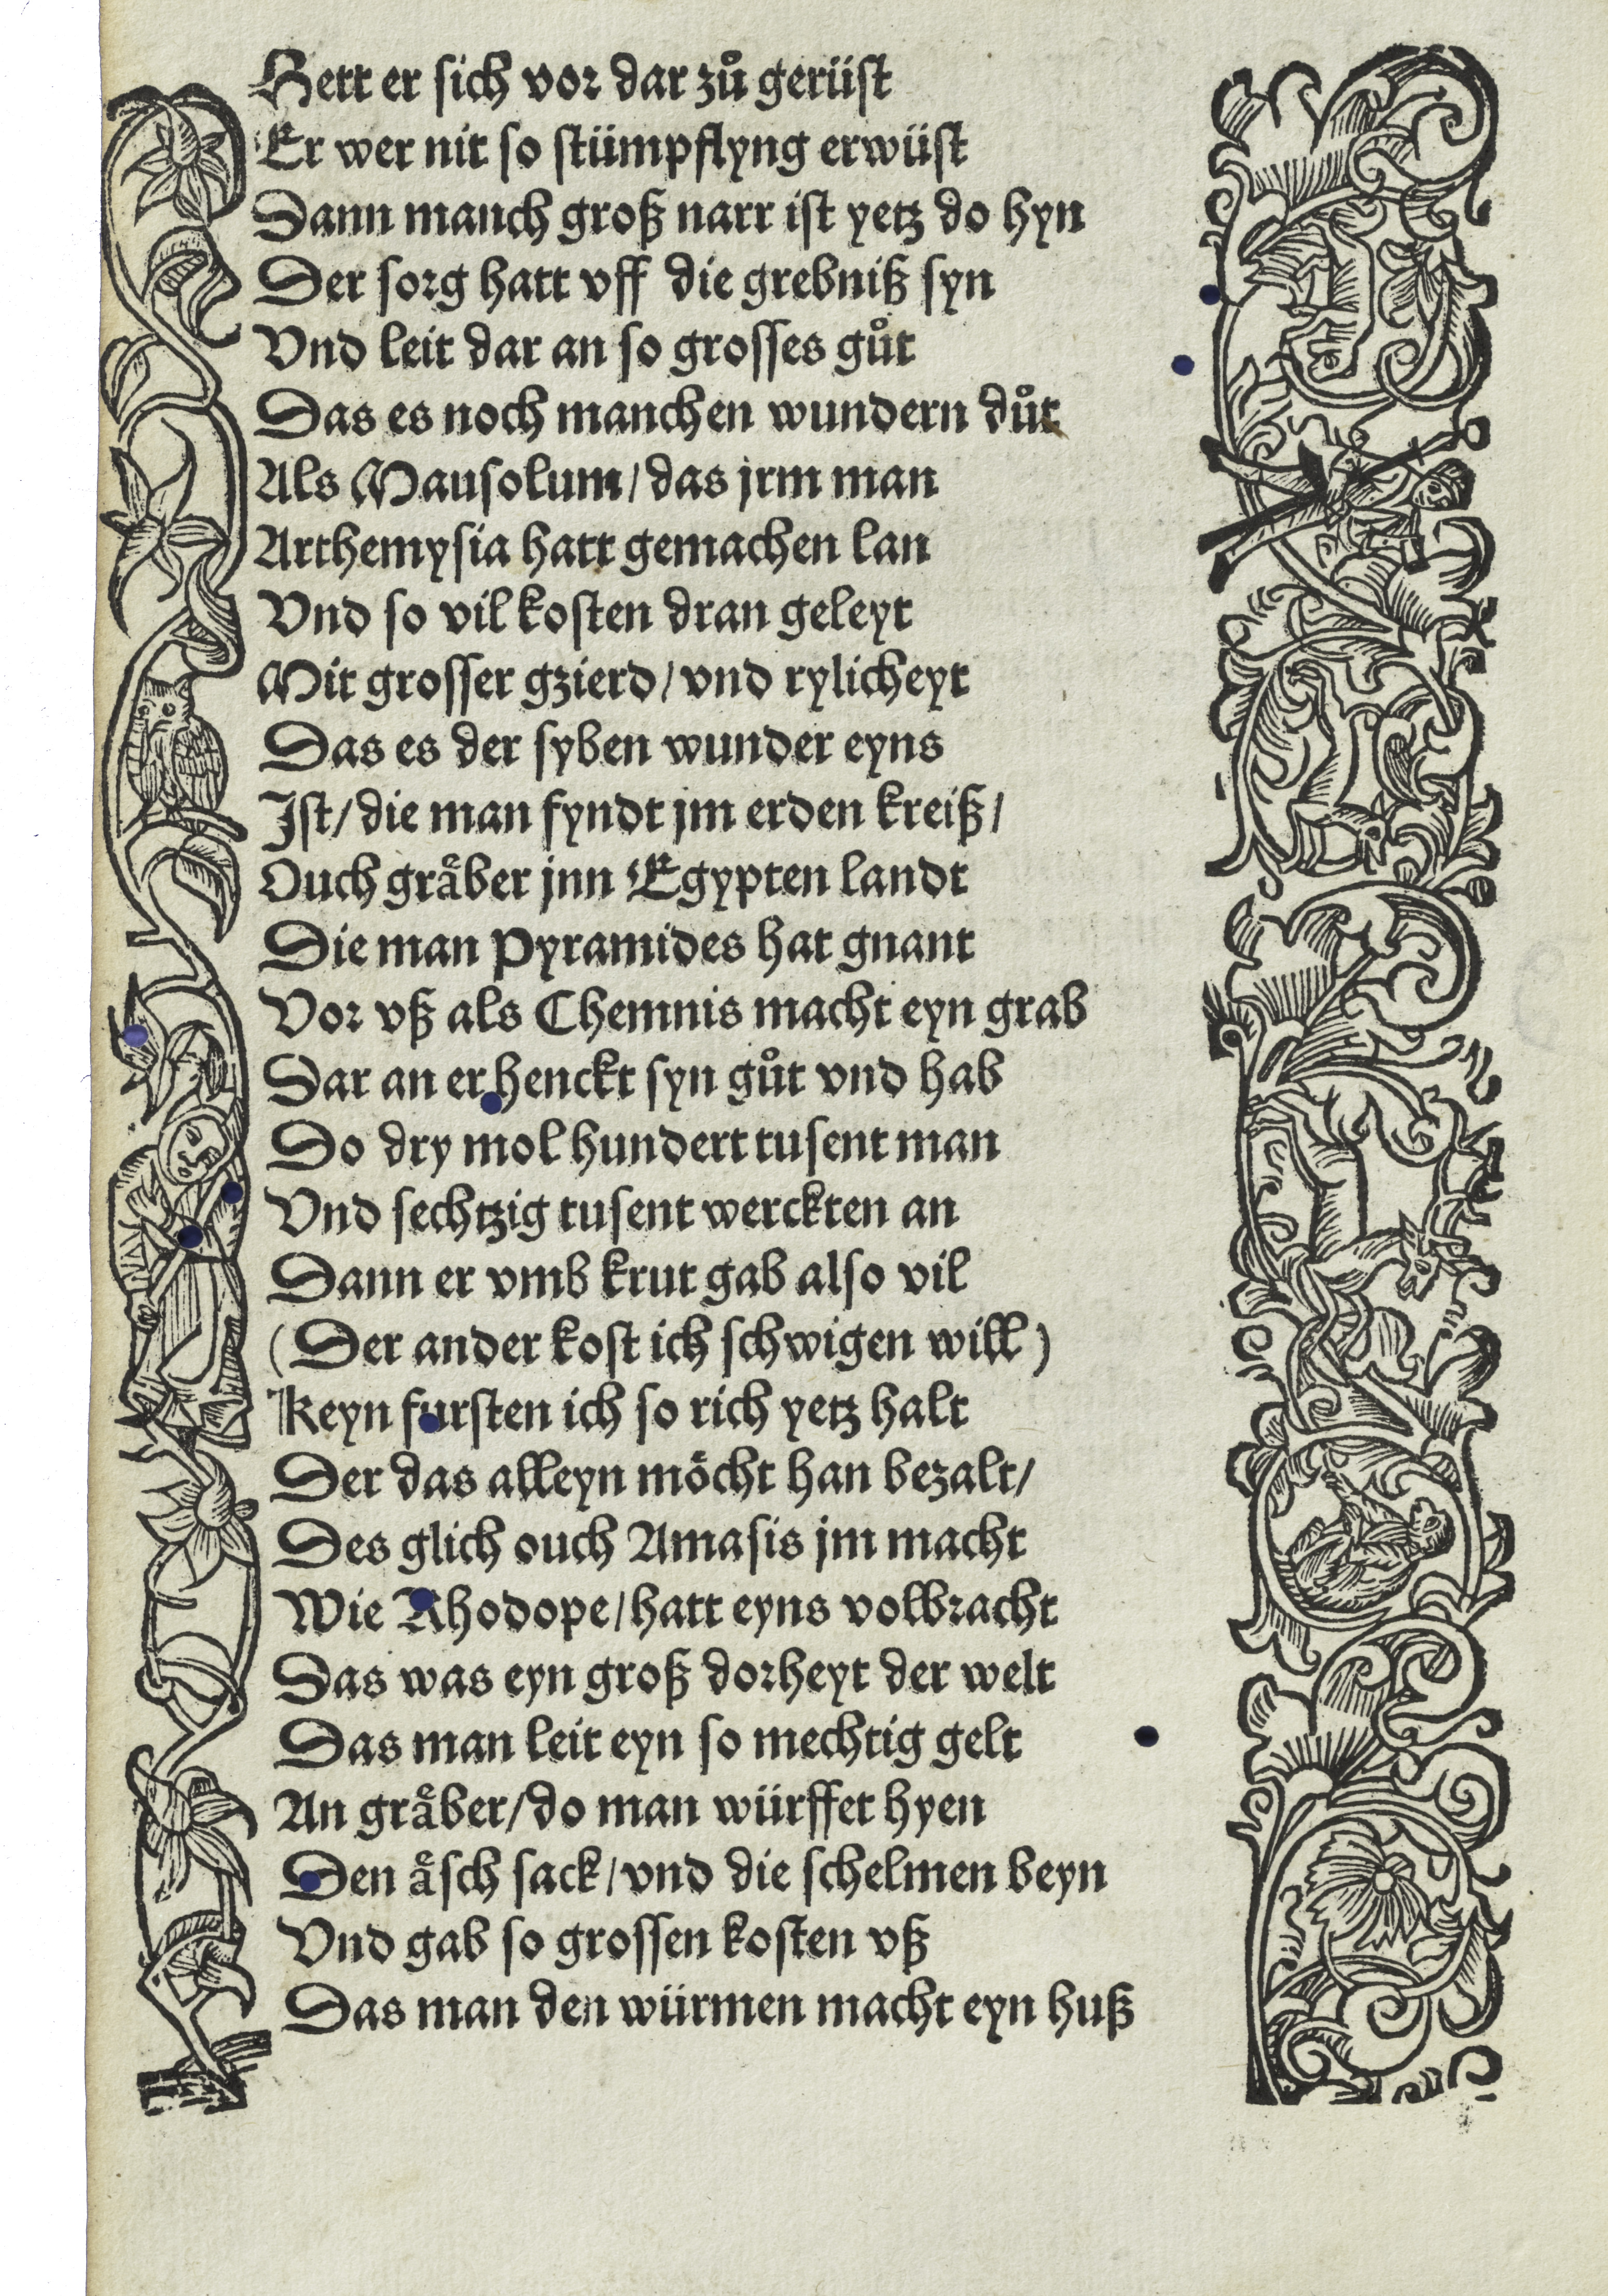 Hett er sich vor dar zuͦ gerüst
Er wer nit so stümpflyng erwüst
Dann manch groß narr ist yetz do hyn
Der sorg hatt vff die grebniß syn
Vnd leit dar an so grosses guͦt
Das es noch manchen wundern duͦt
Als Mausolum / das jrm man
Arthemysia hatt gemachen lan
Vnd so vil kosten dran geleyt
Mit grosser gzierd / vnd rylicheyt
Das es der syben wunder eyns
Ist / die man fyndt jm erden kreiß /
Ouch graͤber jnn Egypten landt
Die man Pyramides hat gnant
Vor vß als Chemnis macht eyn grab
Dar an er henckt syn guͦt vnd hab
Do dry mol hundert tusent man
Vnd sechtzig tusent werckten an
Dann er vmb krut gab also vil
(Der ander kost ich schwigen will)
Keyn fursten ich so rich yetz halt
Der das alleyn möcht han bezalt /
Des glich ouch Amasis jm macht
Wie Rhodope / hatt eyns volbracht
Das was eyn groß dorheyt der welt
Das man leit eyn so mechtig gelt
An graͤber / do man würffet hyen
Den aͤsch sack / vnd die schelmen beyn
Vnd gab so grossen kosten vß
Das man den würmen macht eyn huß